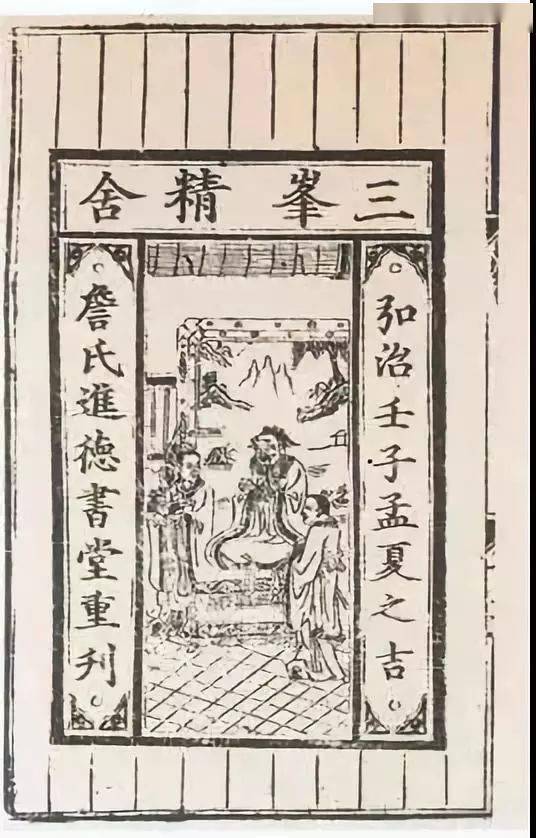 三峯精舍
弘治壬子孟夏之吉
詹氏進德書堂重刊